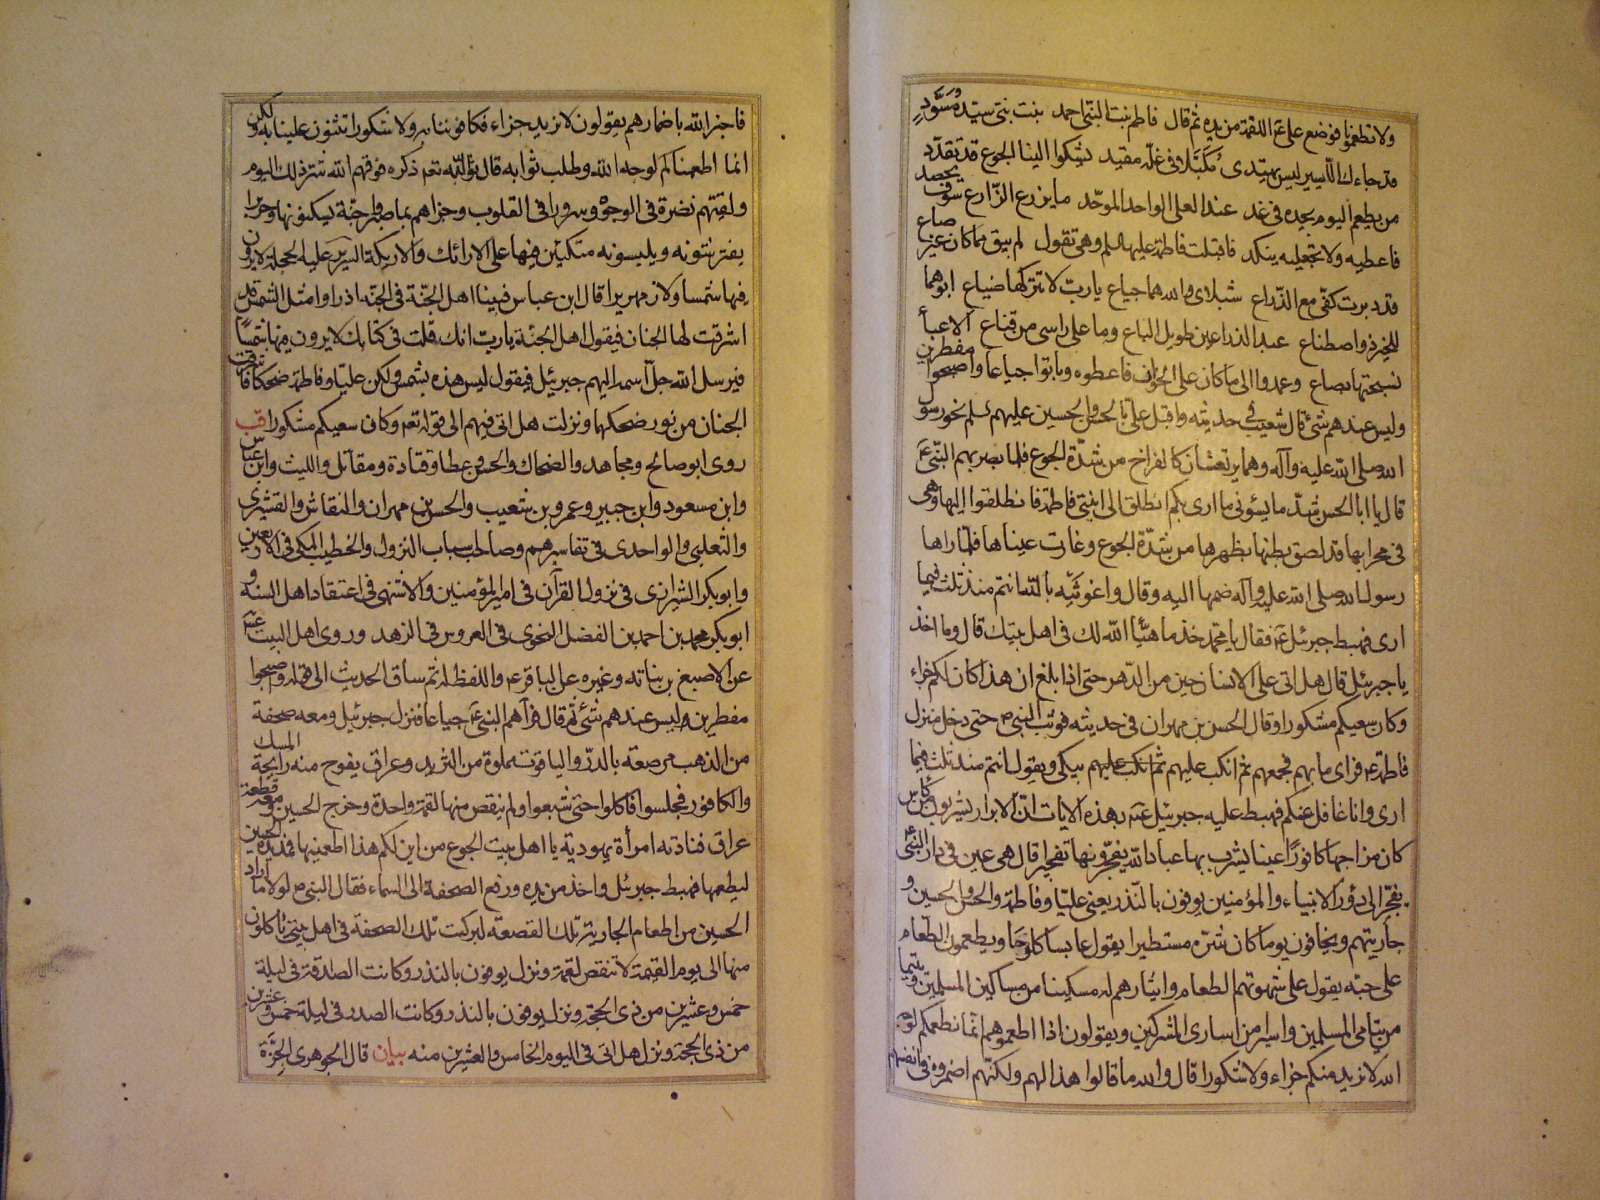 ولا تطعمونا فوضع على ع اللقمة من يده ثم قال فاطم بنت النبي احمد بنت نبي سيد مسود
قد جاءك الاسير ليس يهتدي مكبلا في غله مقيد يشكوا الينا الجوع قد تقدد
من يطعم اليوم يجده في غد عند العلي الواحد الموحد ما يزرع الزارع سوف يحصد
فاعطيه ولا تجعليه ينكد فاقبلت فاطمة عليها السلم وهي تقول لم يبق مما كان غير صاع
قد دبرت كفي مع الذراع شبلاي والله هما جياع يا رب لا تتركهما ضياع ابوهما
للخير ذو اصطناع عبل الذراعين طويل الباع وما على راسي من قناع الا عبا
نسجتها بصاع وعمدوا الى ما كان على الخوان فاعطوه وباتوا جياعا واصبحوا مفطرين
وليس عندهم شئ قال شعيب في حديثه واقبل علي بالحسن والحسين عليهم السلم نحو رسول
الله صلى الله عليه وآله وهما يرتعشان كالفراخ من شدة الجوع فلما بصر بهم النبي ع
قال يا ابا الحسن شد ما يسؤني ما ارى بكم انطلق الى ابنتي فاطمة فانطلقوا اليها وهي
في محرابها قد لصق بطنها بظهرها من شدة الجوع وغارت عيناها فلما راها
رسول الله صلى الله عليه وآله ضمها اليه وقال واغوثاه بالله انتم منذ ثلث فيما
ارى فهبط جبرئيل ع فقال يا محمد خذ ما هنأ الله لك في اهل بيتك قال وما اخذ
يا جبرئيل قال هل اتى على الانسان حين من الدهر حتى اذا بلغ ان هذا كان لكم جزاء
وكان سعيكم مشكورا وقال الحسن بن مهران في حديثه فوثب النبي ص حتى دخل منزل
فاطمة ع فراى ما بهم فجمعهم ثم انكب عليهم ثم انكب عليهم يبكي ويقول انتم منذ ثلث فيما
ارى وانا غافل عنكم فهبط عليه جبرئيل ع بهذه الايات ان الابرار يشربون من كاس
كان مزاجها كافورا عينا يشرب بها عباد الله يفجرونها تفجيرا قال هي عين في دار النبي ع
يفجر الى دور الانبياء والمؤمنين يوفون بالنذر يعني عليا وفاطمة والحسن والحسين و
جاريتهم ويخافون يوما كان شره مستطيرا يقول عابسا كلوحا ويطعمون الطعام
على حبه يقول على شهوتهم الطعام وايثارهم له مسكينا من مساكين المسلمين ويتيما
من يتامى المسلمين واسيرا من اسارى المشركين ويقولون اذا اطعموهم انما نطعمكم لوجه
الله لا نريد منكم جزاء ولا شكورا قال والله ما قالوا هذا لهم ولكنهم اضمروه في انفسهم
فاخبر الله باضمارهم يقولون لا نريد جزاء فكافوننا به ولا شكورا تثنون علينا به ولكن
انما اطعمناكم لوجه الله وطلب ثوابه قال الله تعه ذكره فوقهم الله شر ذلك اليوم
ولقيهم نضرة في الوجوه وسرورا في القلوب وجزاهم بما صبروا جنة يسكنونها وحريرا
يفترشونه ويلبسونه متكئين فيها على الارائك والاريكة السرير عليه الحجلة لا يرون
فيها شمسا ولا زمهريرا قال ابن عباس فبينا اهل الجنة في الجنه اذ راوا مثل الشمس قد
اشرقت لها الجنان فيقول اهل الجنة يا رب انك قلت في كتابك لا يرون فيها شمسا
فيرسل الله جل اسمه اليهم جبرئيل فيقول ليس هذه بشمس ولكن عليا وفاطمة ضحكا فاشرقت
الجنان من نور ضحكهما ونزلت هل اتى فيهم الى قوله تعه وكان سعيكم مشكورا قب
روى ابو صالح ومجاهد والضحاك والحسن وعطا وقتادة ومقاتل والليث وابن عباس
وابن مسعود وابن جبير وعمرو بن شعيب والحسن بن مهران والنقاش والقشيري
والثعلبي والواحدي في تفاسيرهم وصاحب اسباب النزول والخطيب المكي في الاربعين
وابو بكر الشيرازي في نزول القرآن في امير المؤمنين والاشنهي في اعتقاد اهل السنة و
ابو بكر محمد بن احمد بن الفضل النحوي في العروس في الزهد وروى اهل البيت ع
عن الاصبغ بن نباته وغيره عن الباقر ع واللفظ له ثم ساق الحديث الى قوله واصبحوا
مفطرين وليس عندهم شئ ثم قال فرآهم النبي ع جياعا فنزل جبرئيل ومعه صحفة
من الذهب مرصعة بالدر والياقوت مملوة من الثريد وعراق يفوح منه رايحة المسك
والكافور فجلسوا فاكلوا حتى شبعوا ولم ينقص منها لقمة واحدة وخرج الحسين ومعه قطعة
عراق فنادته امرأة يهودية يا اهل بيت الجوع من اين لكم هذا اطعمنيها فمد يده الحسين
ليطعمها فهبط جبرئيل واخذ من يده ورفع الصحفة الى السماء فقال النبي ص لولا ما اراد
الحسين من اطعام الجارية تلك القصعة لتركت تلك الصحفة في اهل بيتي ياكلون
منها الى يوم القيمة لا تنقص لقمة ونزل يوفون بالنذر وكانت الصدقة في ليلة
خمس وعشرين من ذي الحجة ونزل يوفون بالنذر وكانت الصدر في ليلة خمس وعشرين
من ذي الحجة ونزل هل اتى في اليوم الخامس والعشرين منه بيان قال الجوهري الجزة